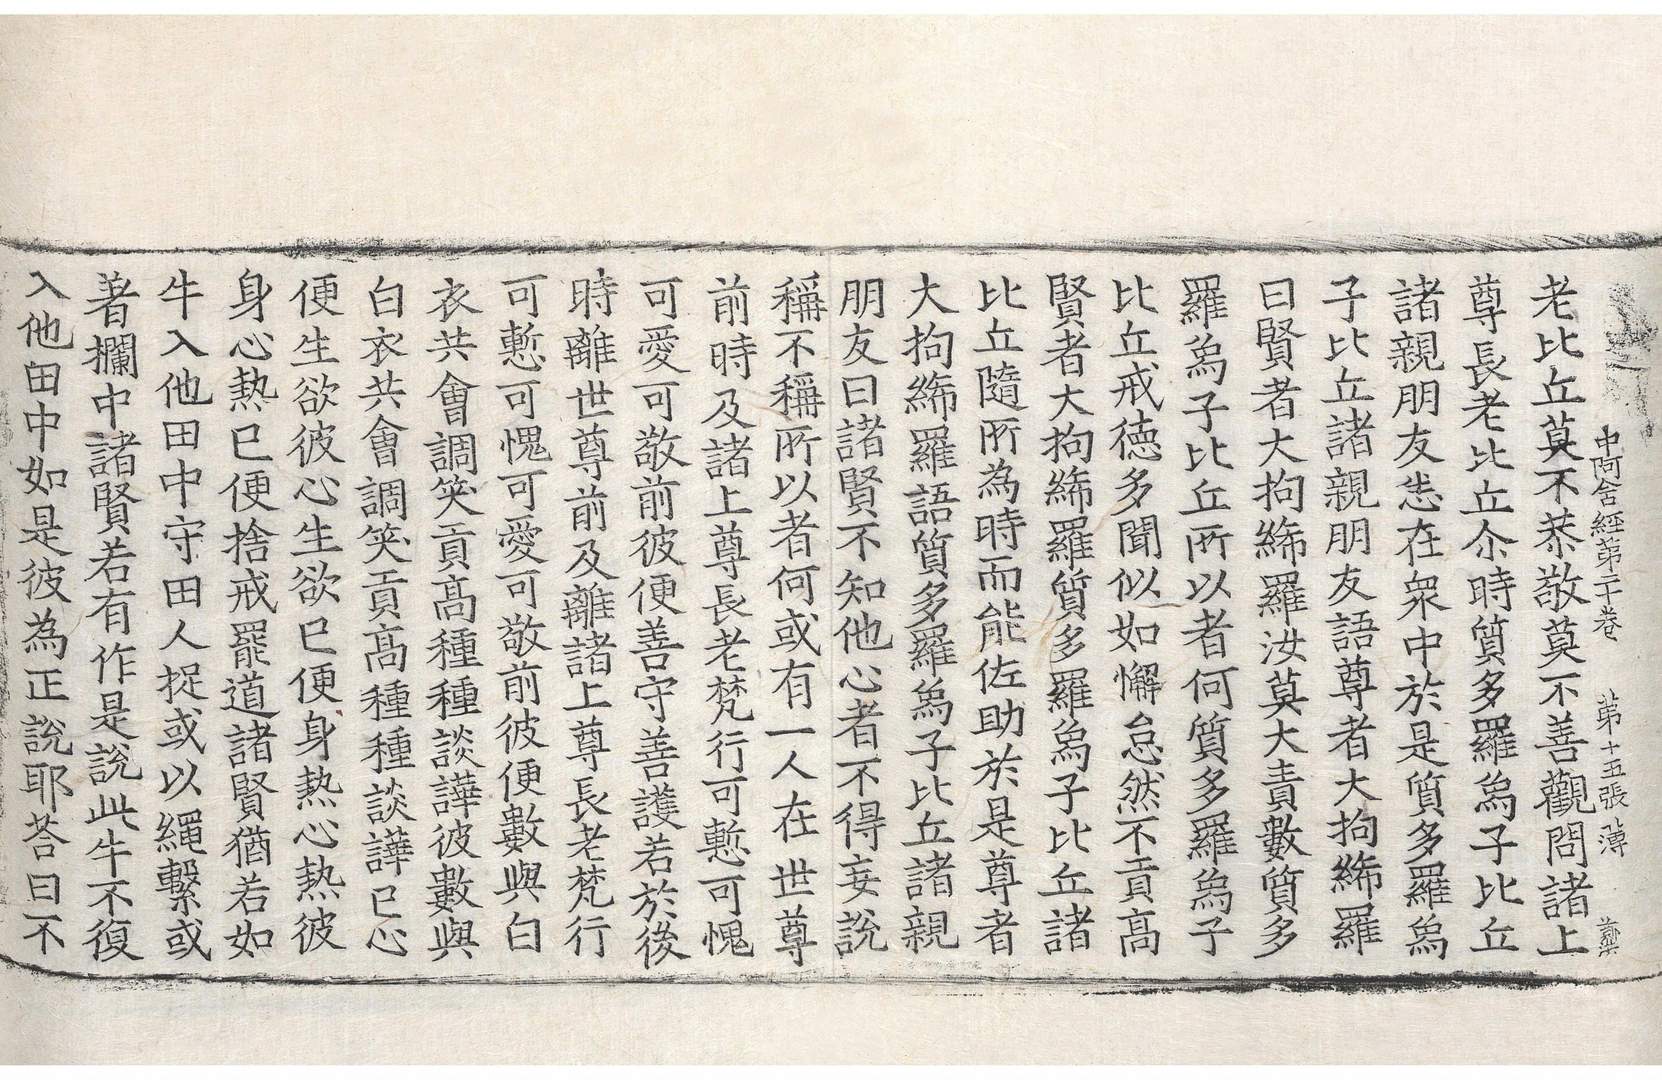 中阿含經第二十卷 第十五張 薄
老比丘莫不恭敬莫不善觀問諸上
尊長老比丘尒時質多羅烏子比丘
諸親朋友悉在衆中於是質多羅烏
子比丘諸親朋友語尊者大拘絺羅
曰賢者大拘絺羅汝莫大責數質多
羅烏子比丘所以者何質多羅烏子
比丘戒德多聞似如懈怠然不貢高
賢者大拘絺羅質多羅烏子比丘諸
比丘隨所為時而能佐助於是尊者
大拘絺羅語質多羅烏子比丘諸親
朋友曰諸賢不知他心者不得妄說
稱不稱所以者何或有一人在世尊
前時及諸上尊長老梵行可慙可愧
可愛可敬前彼便善守善護若於後
時離世尊前及離諸上尊長老梵行
可慙可愧可愛可敬前彼便數與白
衣共會調笑貢高種種談譁彼數與
白衣共會調笑貢高種種談譁已心
便生欲彼心生欲已便身熱心熱彼
身心熱已便捨戒罷道諸賢猶若如
牛入他田中守田人捉或以繩繫或
著攔中諸賢若有作是說此牛不復
入他田中如是彼為正說耶荅曰不